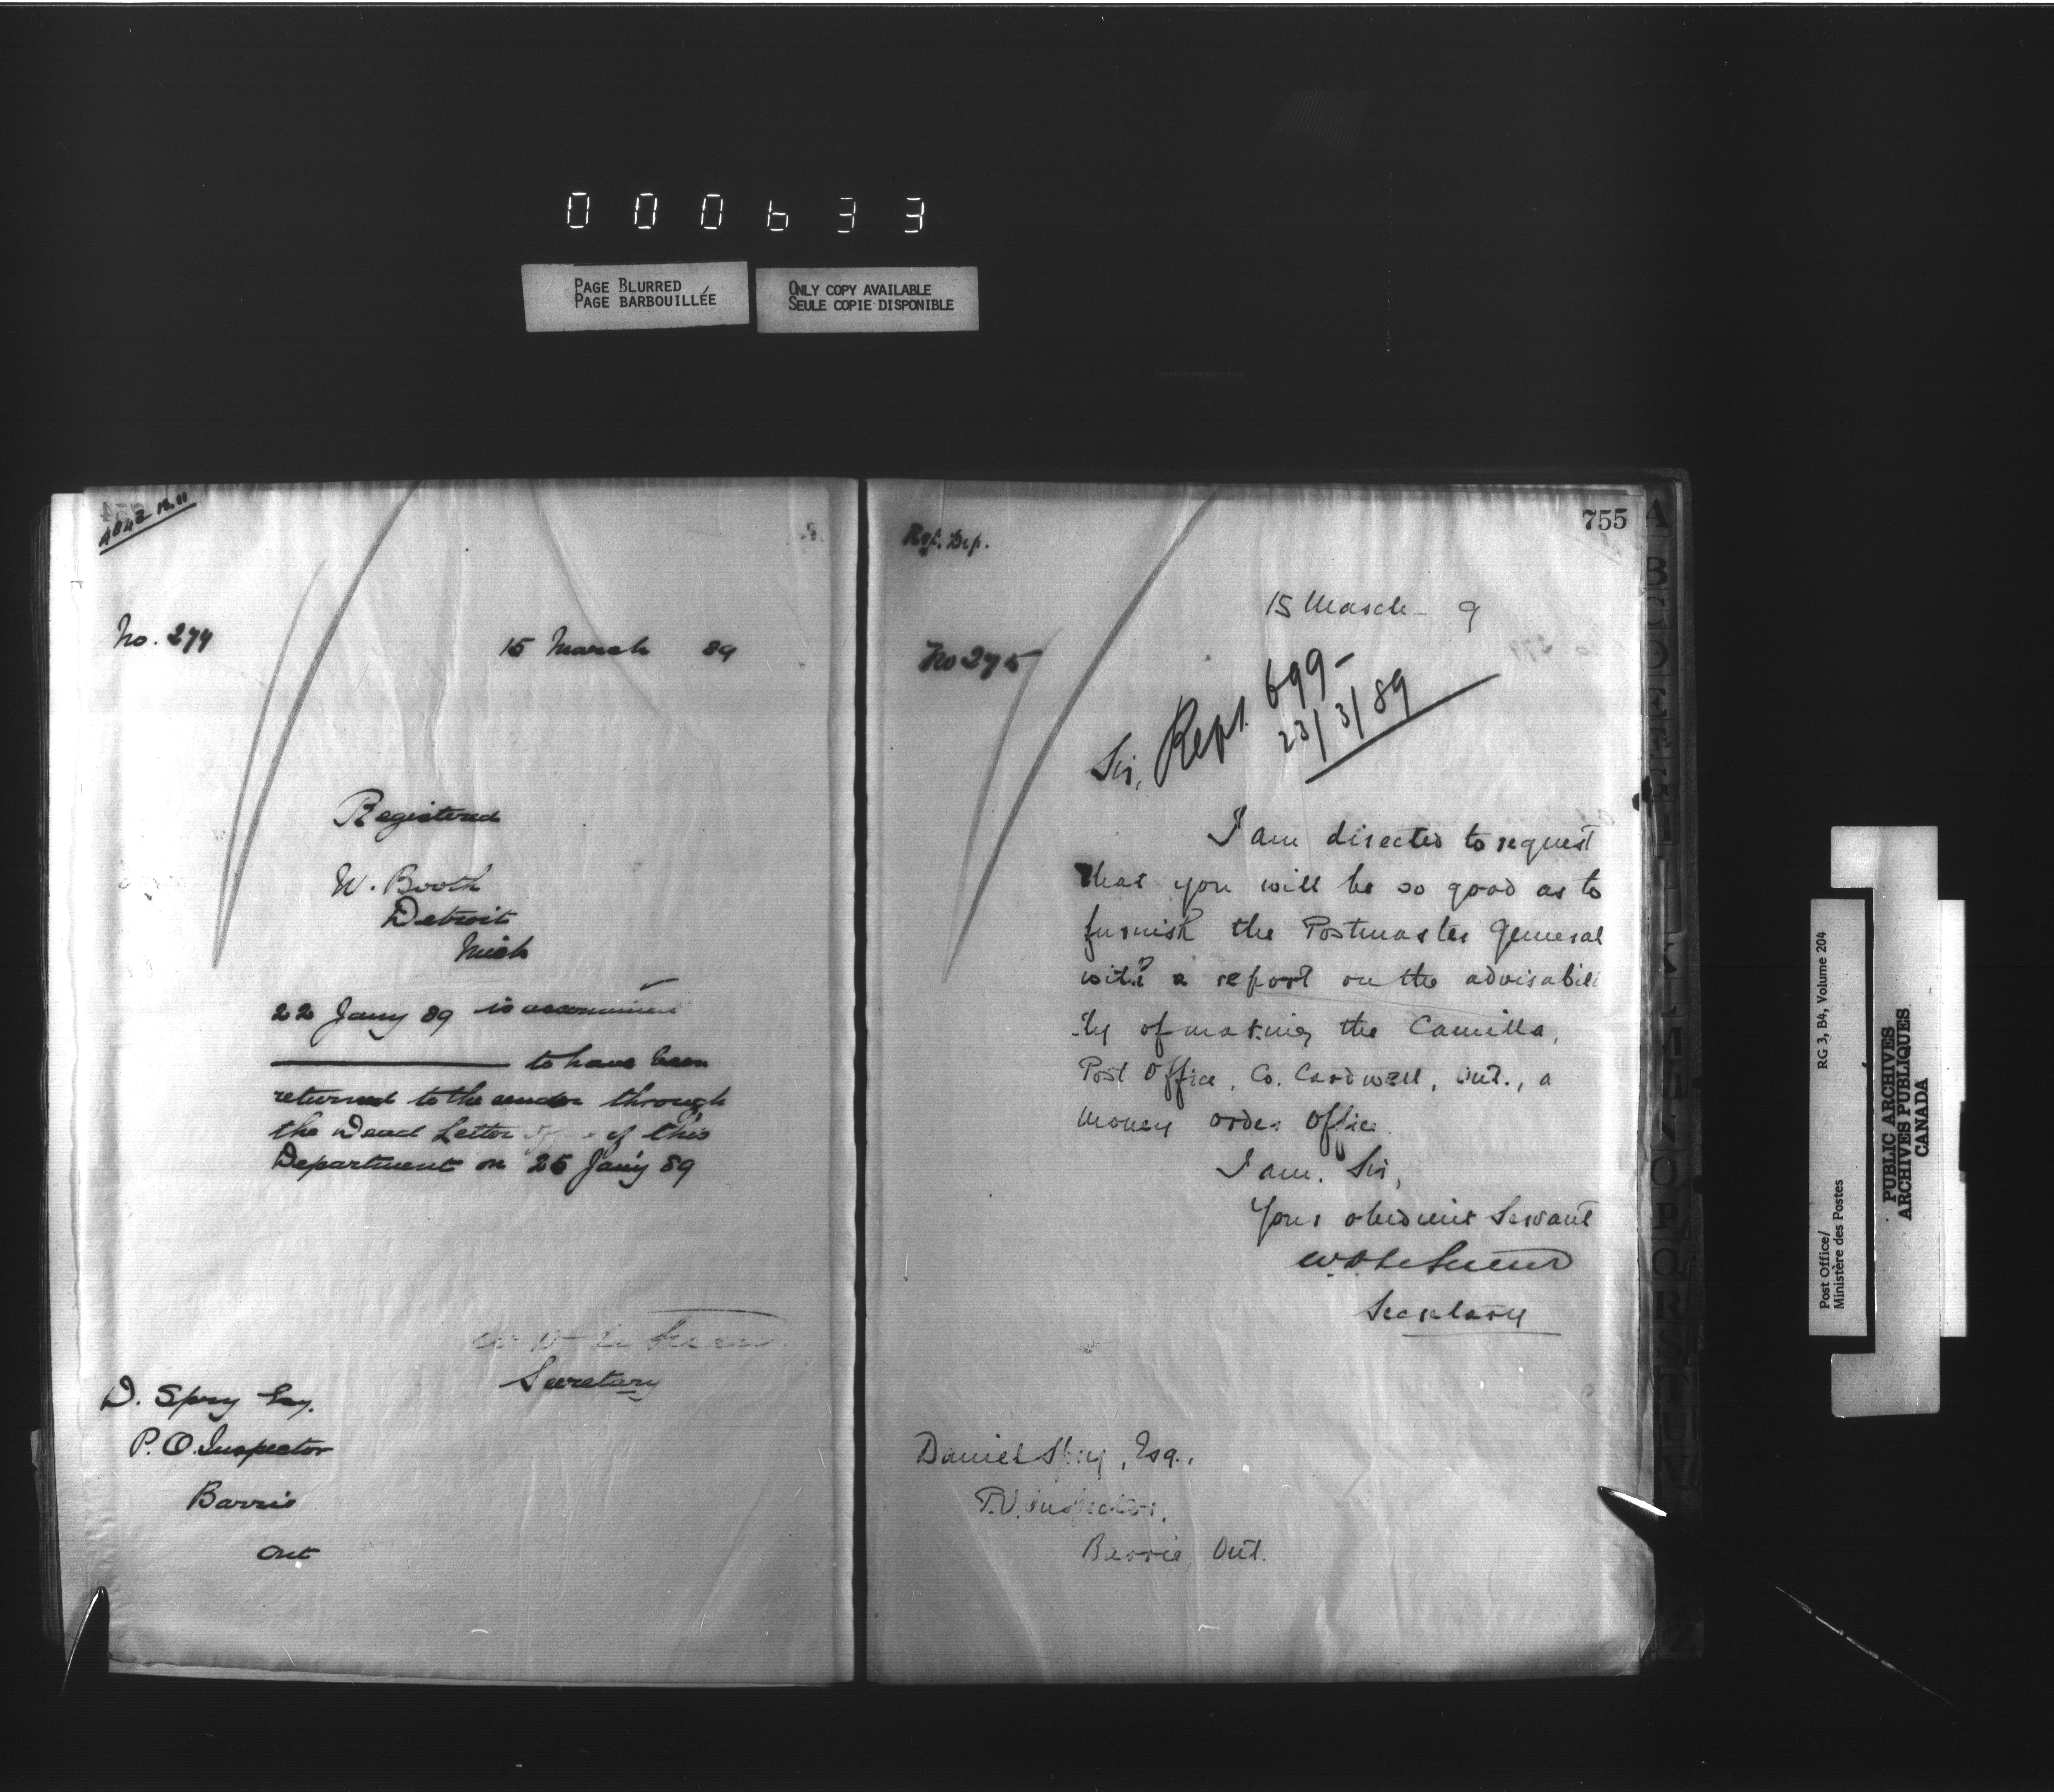 000633
PAGE BLURRED
PAGE BARBOUILLÉE
ONLY COPY AVAILABLE
SEULE COPIE DISPONIBLE
No. 274
15 March 89
Registered
W. Booth
Detroit
Mich
22 Jany 89 is ascertained
to have been
returned to the sender through
the Dead Letter Office of this
Department on 25 Jany 89
W D LeSueur
Secretary
D. Spry Esq.
P. O. Inspector
Barrie
Ont
755
15 March 9
No 275
Rept. 699-
23/3/89
Sir,
I am directed to request
that you will be so good as to
furnish the Postmaster General
with a report on the advisabili
ty of making the Camilla,
Post Office, Co. Cardwell, Ont., a
money order office.
I am, Sir,
Your obedient Servant
W D LeSueur
Secretary
Daniel Spry, Esq.,
P.O. Inspector,
Barrie, Ont.
A
B
C
D
E
F
O
P
Q
R
S
T
U
V
Z
Post Office/
Ministère des Postes
RG 3, B4, Volume 204
PUBLIC ARCHIVES
ARCHIVES PUBLIQUES
CANADA